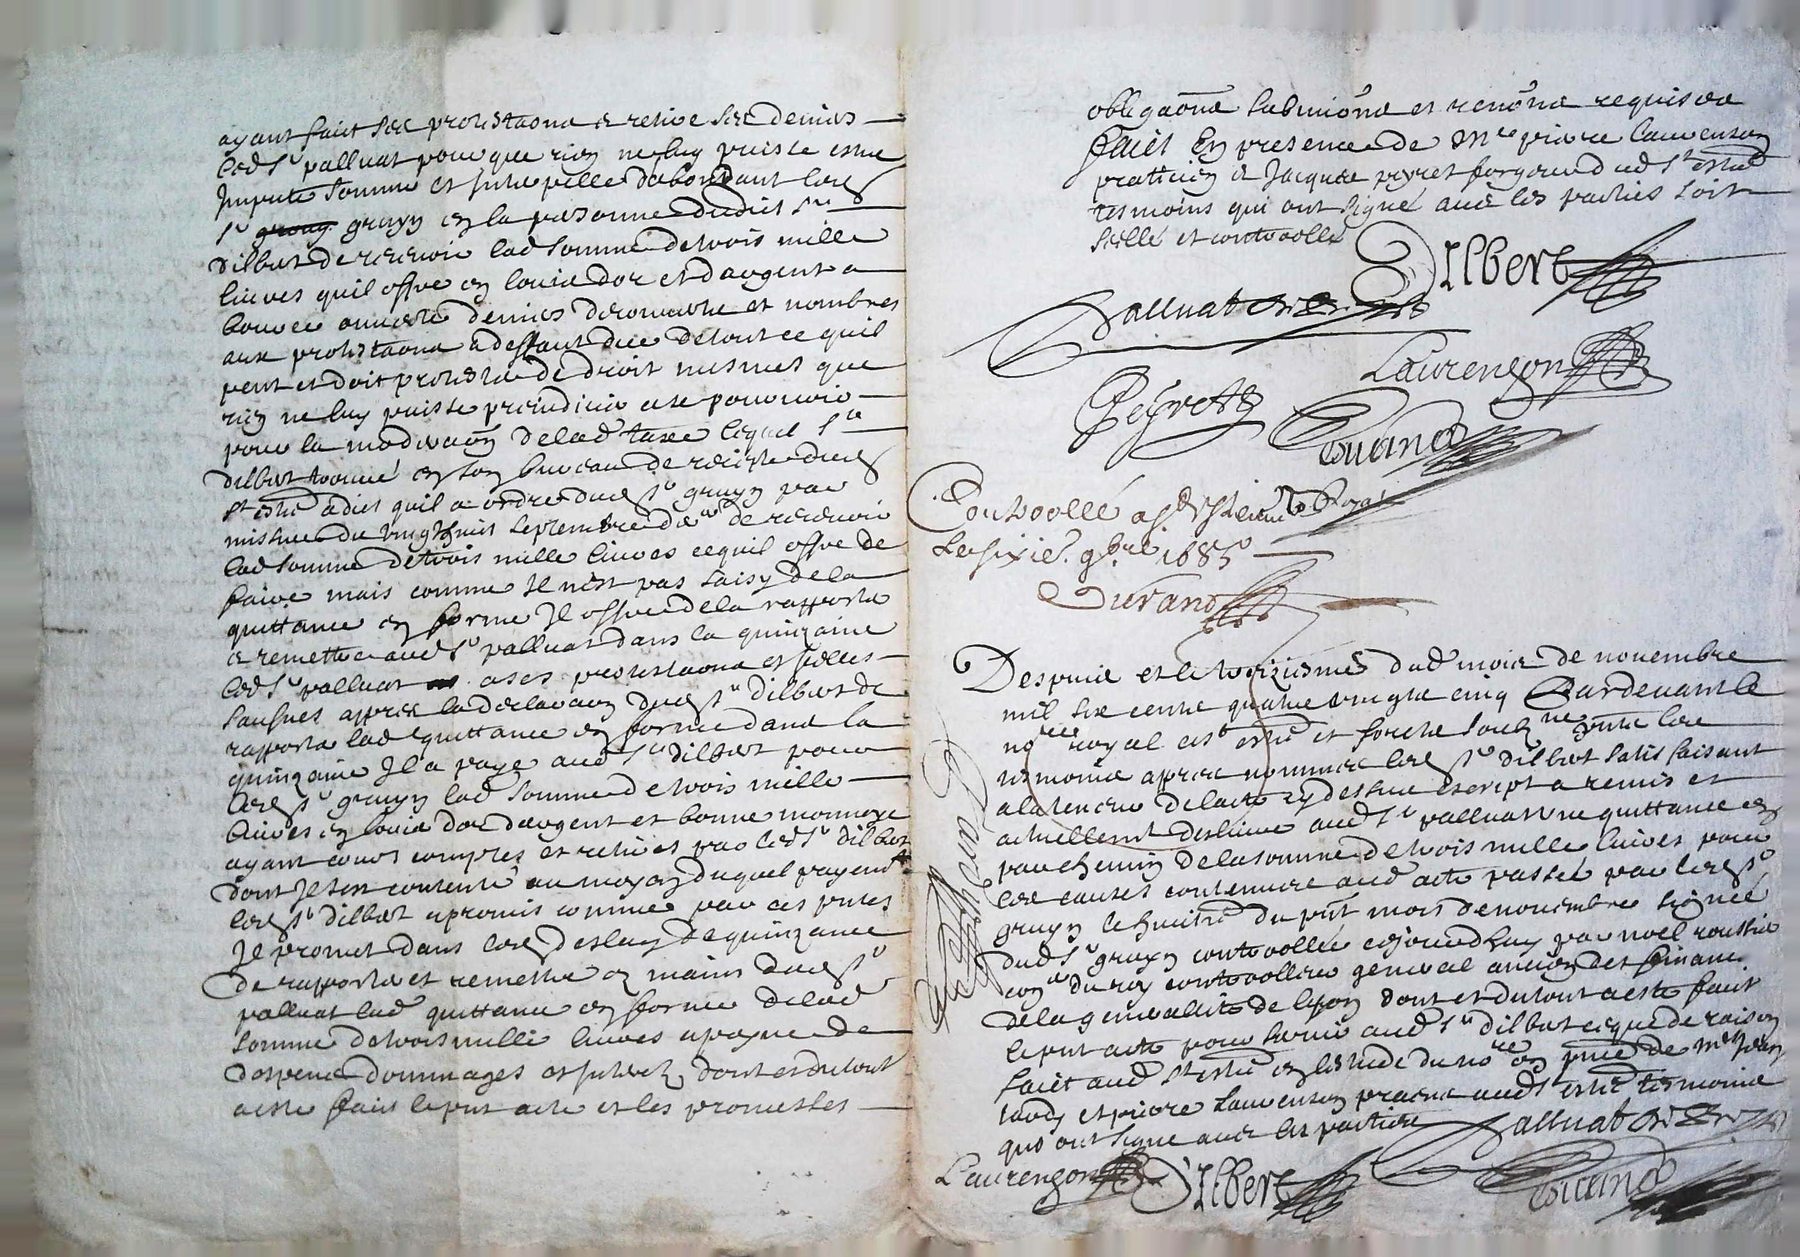 ayant fait ses protestaons et retire ses deniers
led Sr palluat pour que rien ne luy puisse estre
Impute somme et Interpelle dabondant lesd
Sr gruyn en la personne dudict Sr
dilbert de recevoir lad somme de trois mille
livres quil offre en louis dor et dargent a
bourse ouverte deniers descouverts et nombres
aux protestaons a deffaut dice de tout ce quil
peut et doit protester de droit mesmes que
rien ne luy puisse preiudicier et se pourvoir
pour la moderaon de lad taxe lequel Sr
dilbert trouvé en son bureau de recepte dud
St estne a dict quil a ordre dud Sr gruyn par
missive du vingt huit septembre der de recevoir
lad somme de trois mille livres ce quil offre de
faire mais comme Il nest pas saisy de la
quittance en forme Il offre de la rapporter
et remettre aud Sr palluat dans la quinzaine
led Sr palluat a ses protestaons et Icelles
saufves appres la declaraon dud Sr dilbert de
rapporter lad quittance en forme dans la
quinzaine Il a paye aud Sr dilbert pour
lesd Sr gruyn lad somme de trois mille
livres en louis dor dargent et bonne monnoye
ayant cours comptes et retirés par led Sr dilbert
dont Il sest contenté au moyen duquel payemt
led Sr dilbert a promis comme par ces pntes
Il promet dans led deslay de quinzaine
de rapporter et remettre en mains dud Sr
palluat lad quittance en forme de lad
somme de trois mille livres a payne de
despens dommages et Interestz dont et du tout
a este fait le pnt acte et les promesses
obligaons submions et renons requises
faict En presence de Me pierre laurenson
praticien et Jacques peyret forgeur dud St estne
tesmoins qui ont signé avec les parties soit
scellé et controollé
DIlbert
Palluat
Laurenson
Peyret
Durand
Controollé a St Estienne
Le sixie. 9bre 1685
Durand
Despuis et le troiziesme dud mois de novembre
mil six cents quatre vingts cinq Pardevant le
nore royal a St estne et forestz soubzne entre les
tesmoins appres nommes led Sr dilbert satisfaisant
a la teneur de lacte cy dessus escript a remis et
actuellemt deslivre aud Sr palluat une quittance en
parchemin de la somme de trois mille livres pour
les causes contenues aud acte passée par led Sr
gruyn le huitie du pnt mois de novembre signée
dud Sr gruyn controollée ce jourdhuy par noel roustin
coner du roy controolleur general ancien des finances
de la generalité de lyon dont et du tout a este fait
le pnt acte pour servir aud Sr dilbert ce que de raison
faict aud St estne en lestude du nore en pnce de Me Jean
et pierre laurenson praciens aud St estne tesmoins
qui ont signe avec les parties
Palluat
Laurenson
DIlbert
Durand